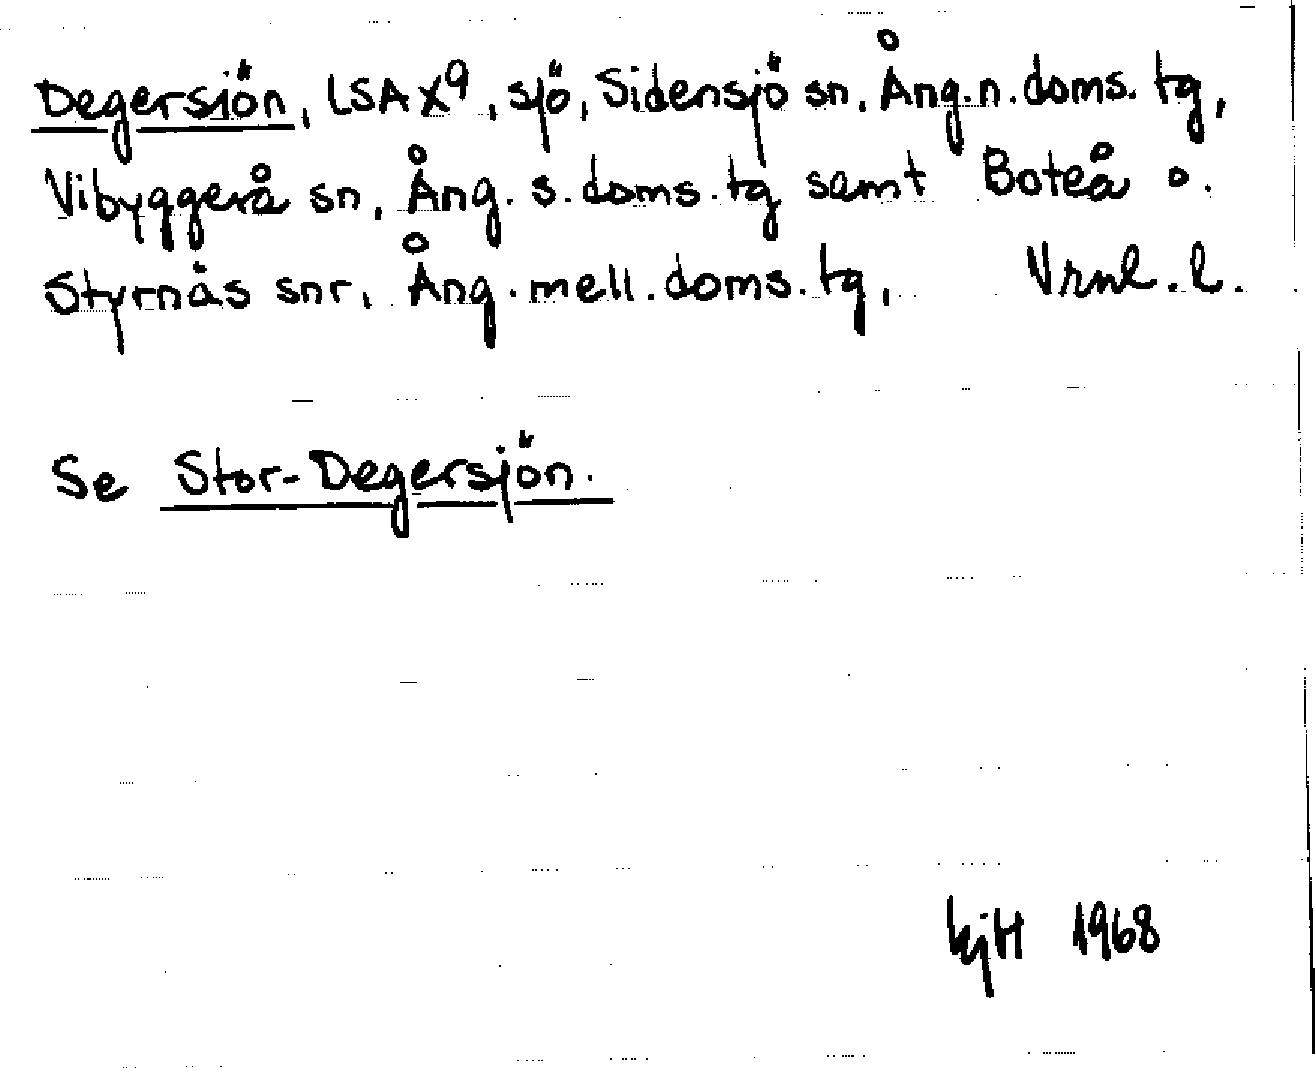 Degersjön, LSA X9, sjö, Sidensjö sn, Ång.n.doms.tg,
Vibyggerå sn, Ång.s.doms.tg samt Boteå o.
Styrnäs snr, Ång.mell.doms.tg, Vrnl.l.
Se Stor-Degersjön.
1968